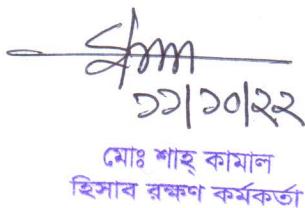 ১১/১০/২২
মোঃ শাহ্ কামাল
হিসাব রক্ষণ কর্মকর্তা